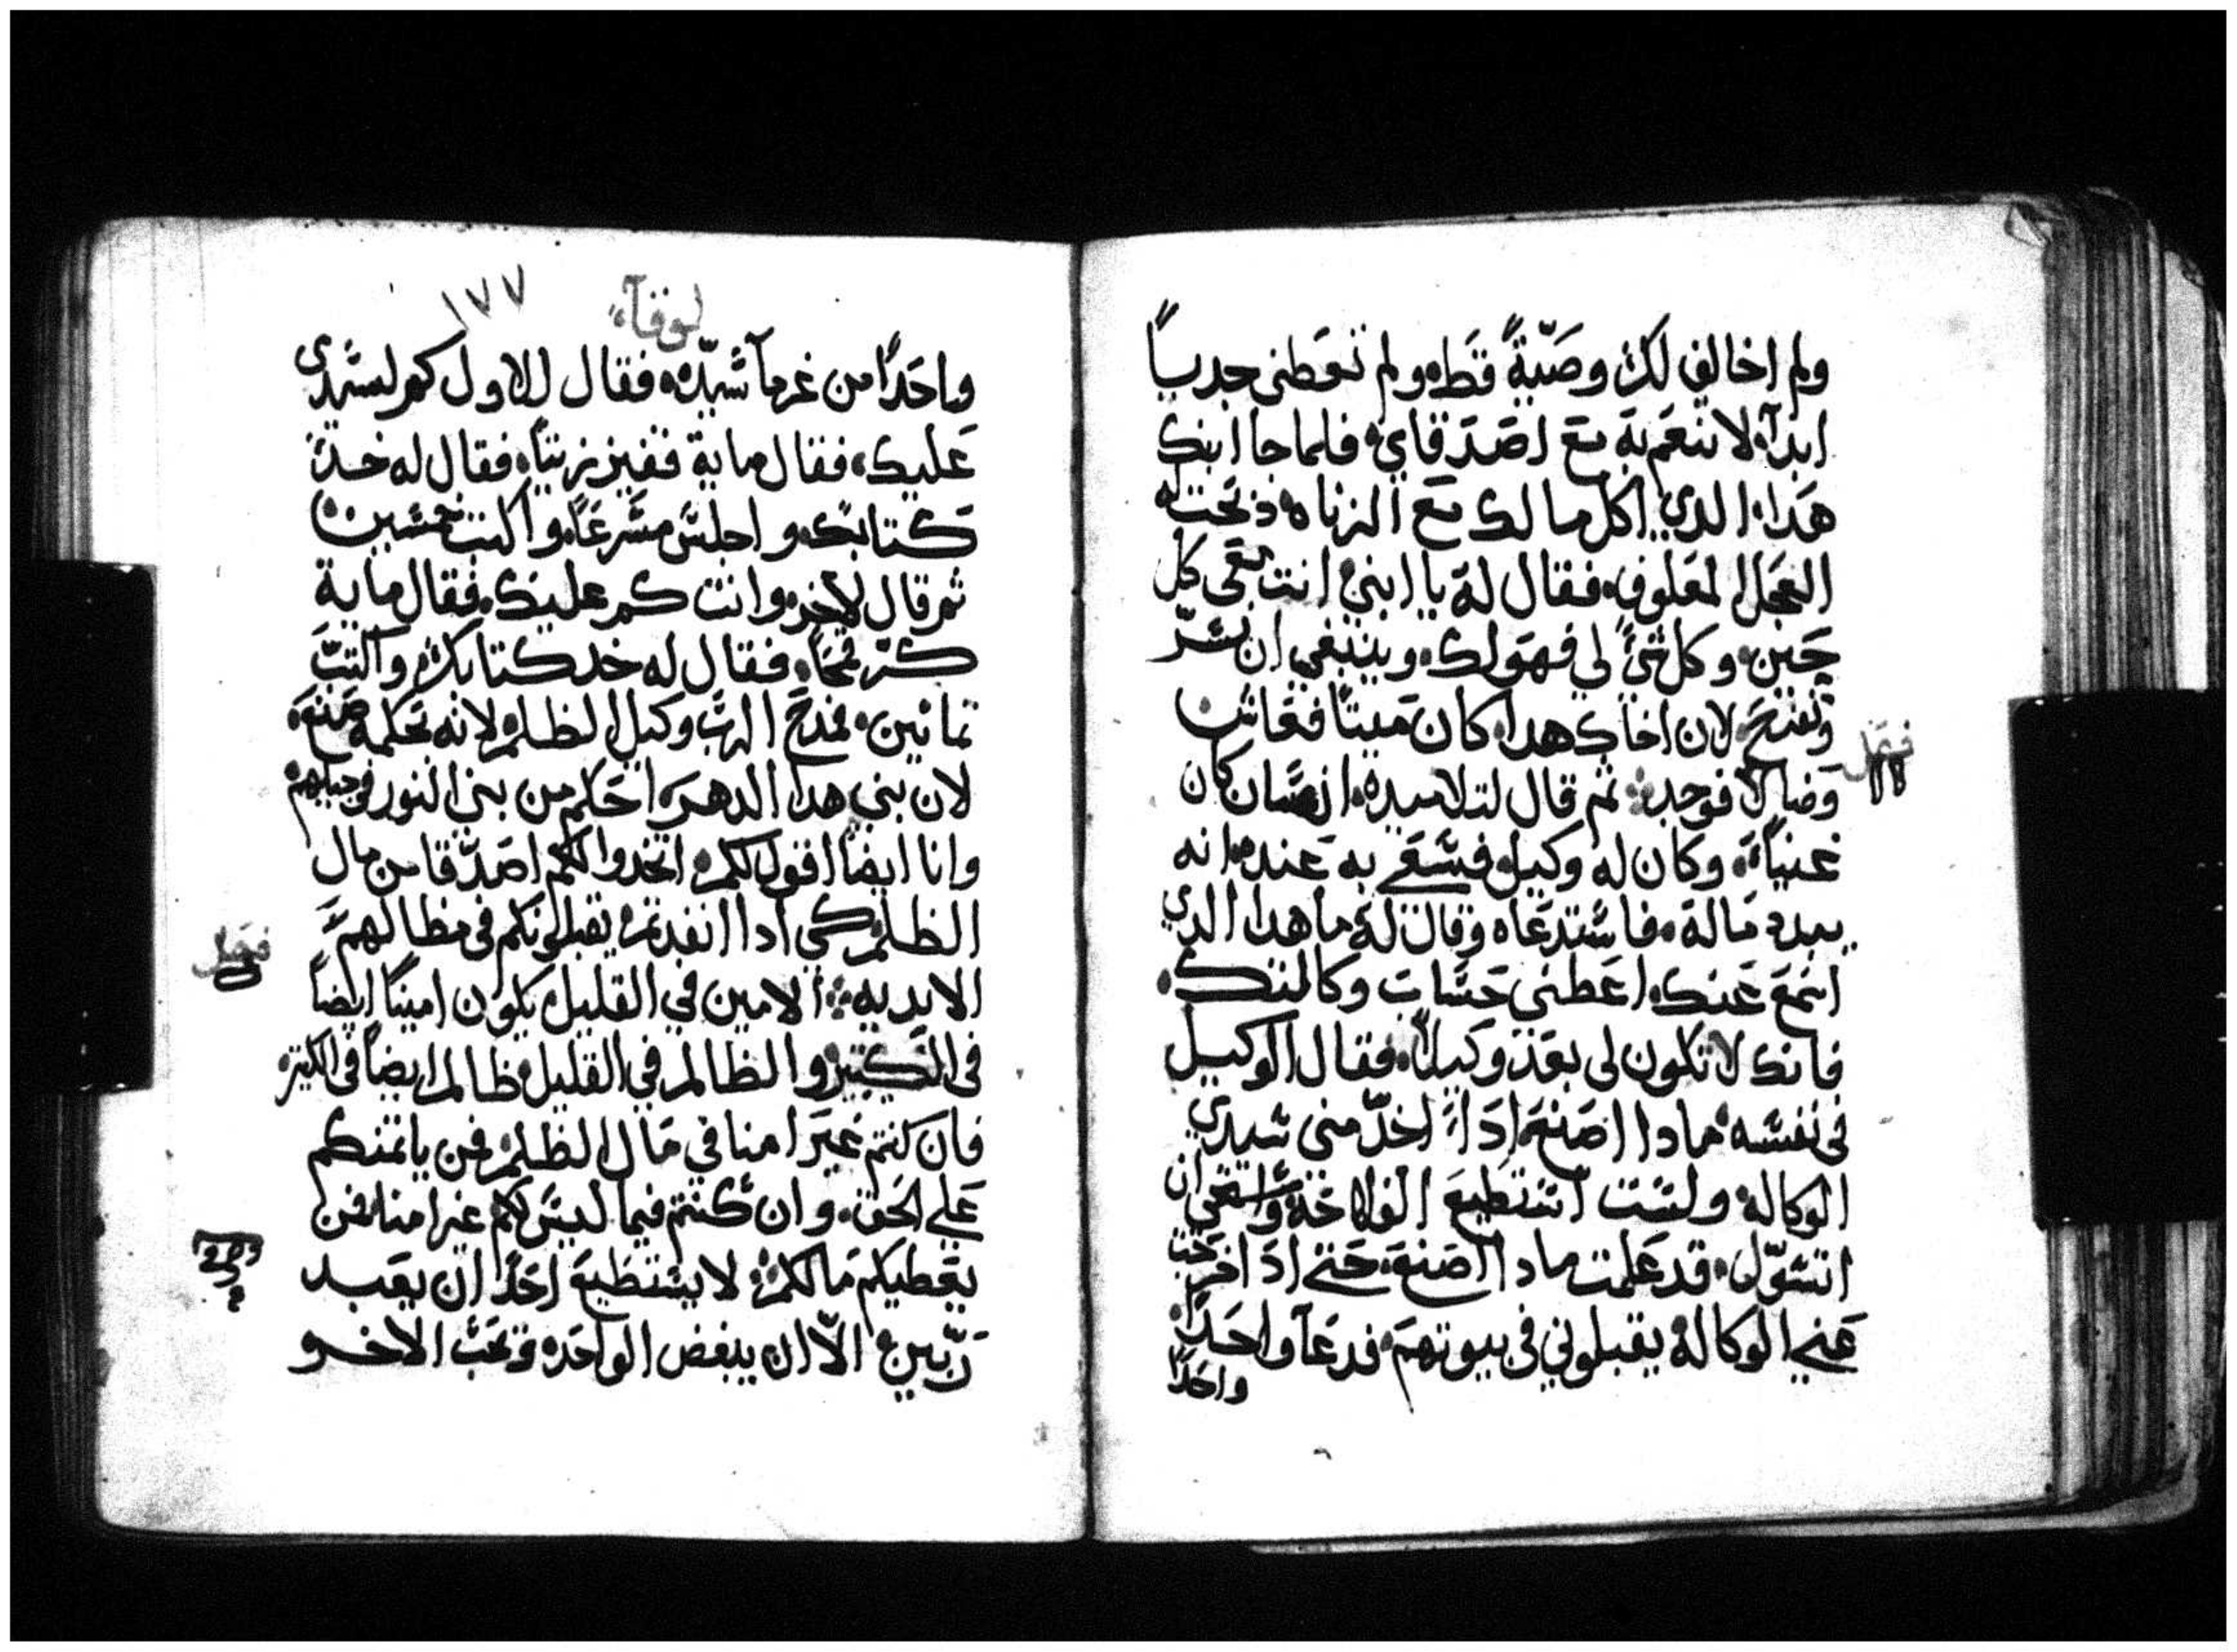 ولم اخالف لك وصّيةً قط ولم تعطنى جدياً
ابداً لاتنعم به مع اصدقاي فلما جا ابنك
هدا الدي اكل مالك مع الزناه ذبحت له
العجل المعلوف فقال له يا ابني انت معى كل
حين وكل شئ لي فهو لك وينبغي ان نسّر
ونفرح لان اخاك هدا كان ميتاً فعاش
وضالاً فوجد ثم قال لتلاميده انسان كان
فصل
غنياً وكان له وكيل فسعى به عنده انه
يبدد ماله فاستدعاه وقال له ما هدا الدي
اسمع عنك اعطنى حساب وكالتك
فانك لا تكون لى بعد وكيلاً فقال الوكيل
فى نفسه مادا اصنع ادا اخد منى سيدي
الوكاله ولست استطيع الفلاحة واستحى ان
اتسوّل قد علمت مادا اصنع حتى ادا اخرجت
عني الوكالة يقبلوني فى بيوتهم فدعا واحداً
واحداً
لوقا
١٧٧
واحداً من غرما سيّده فقال للاول كم لسيدى
عليك فقال ماية قفيز زيتاً فقال له خد
كتابك واجلس مسرعاً واكتب خمسين
ثم قال لاخر وانت كم عليك فقال ماية
كرّ قمحاً فقال له خد كتابك واكتب
تمانين فمدح الرب وكيل الظلم لانه بحكمه صنع
لان بني هدا الدهر احكم من بنى النور فى جيلهم
وانا ايضاً اقول لكم اتخدوا لكم اصدقا من مال
الظلم كي ادا انفدتم يقبلونكم فى مظالهم
الابديه الامين في القليل يكون اميناً ايضاً
فصل
فى الكتير والظالم في القليل ظالم ايضاً فى الكتير
فان كنتم غير امنا في مال الظلم فمن ياتمنكم
على الحق وان كنتم فيما ليس لكم غير امنا فمن
يعطيكم مالكم لا يستطيع احداً ان يعبد
ربّين الاّ ان يبغض الواحد ويحب الاخر